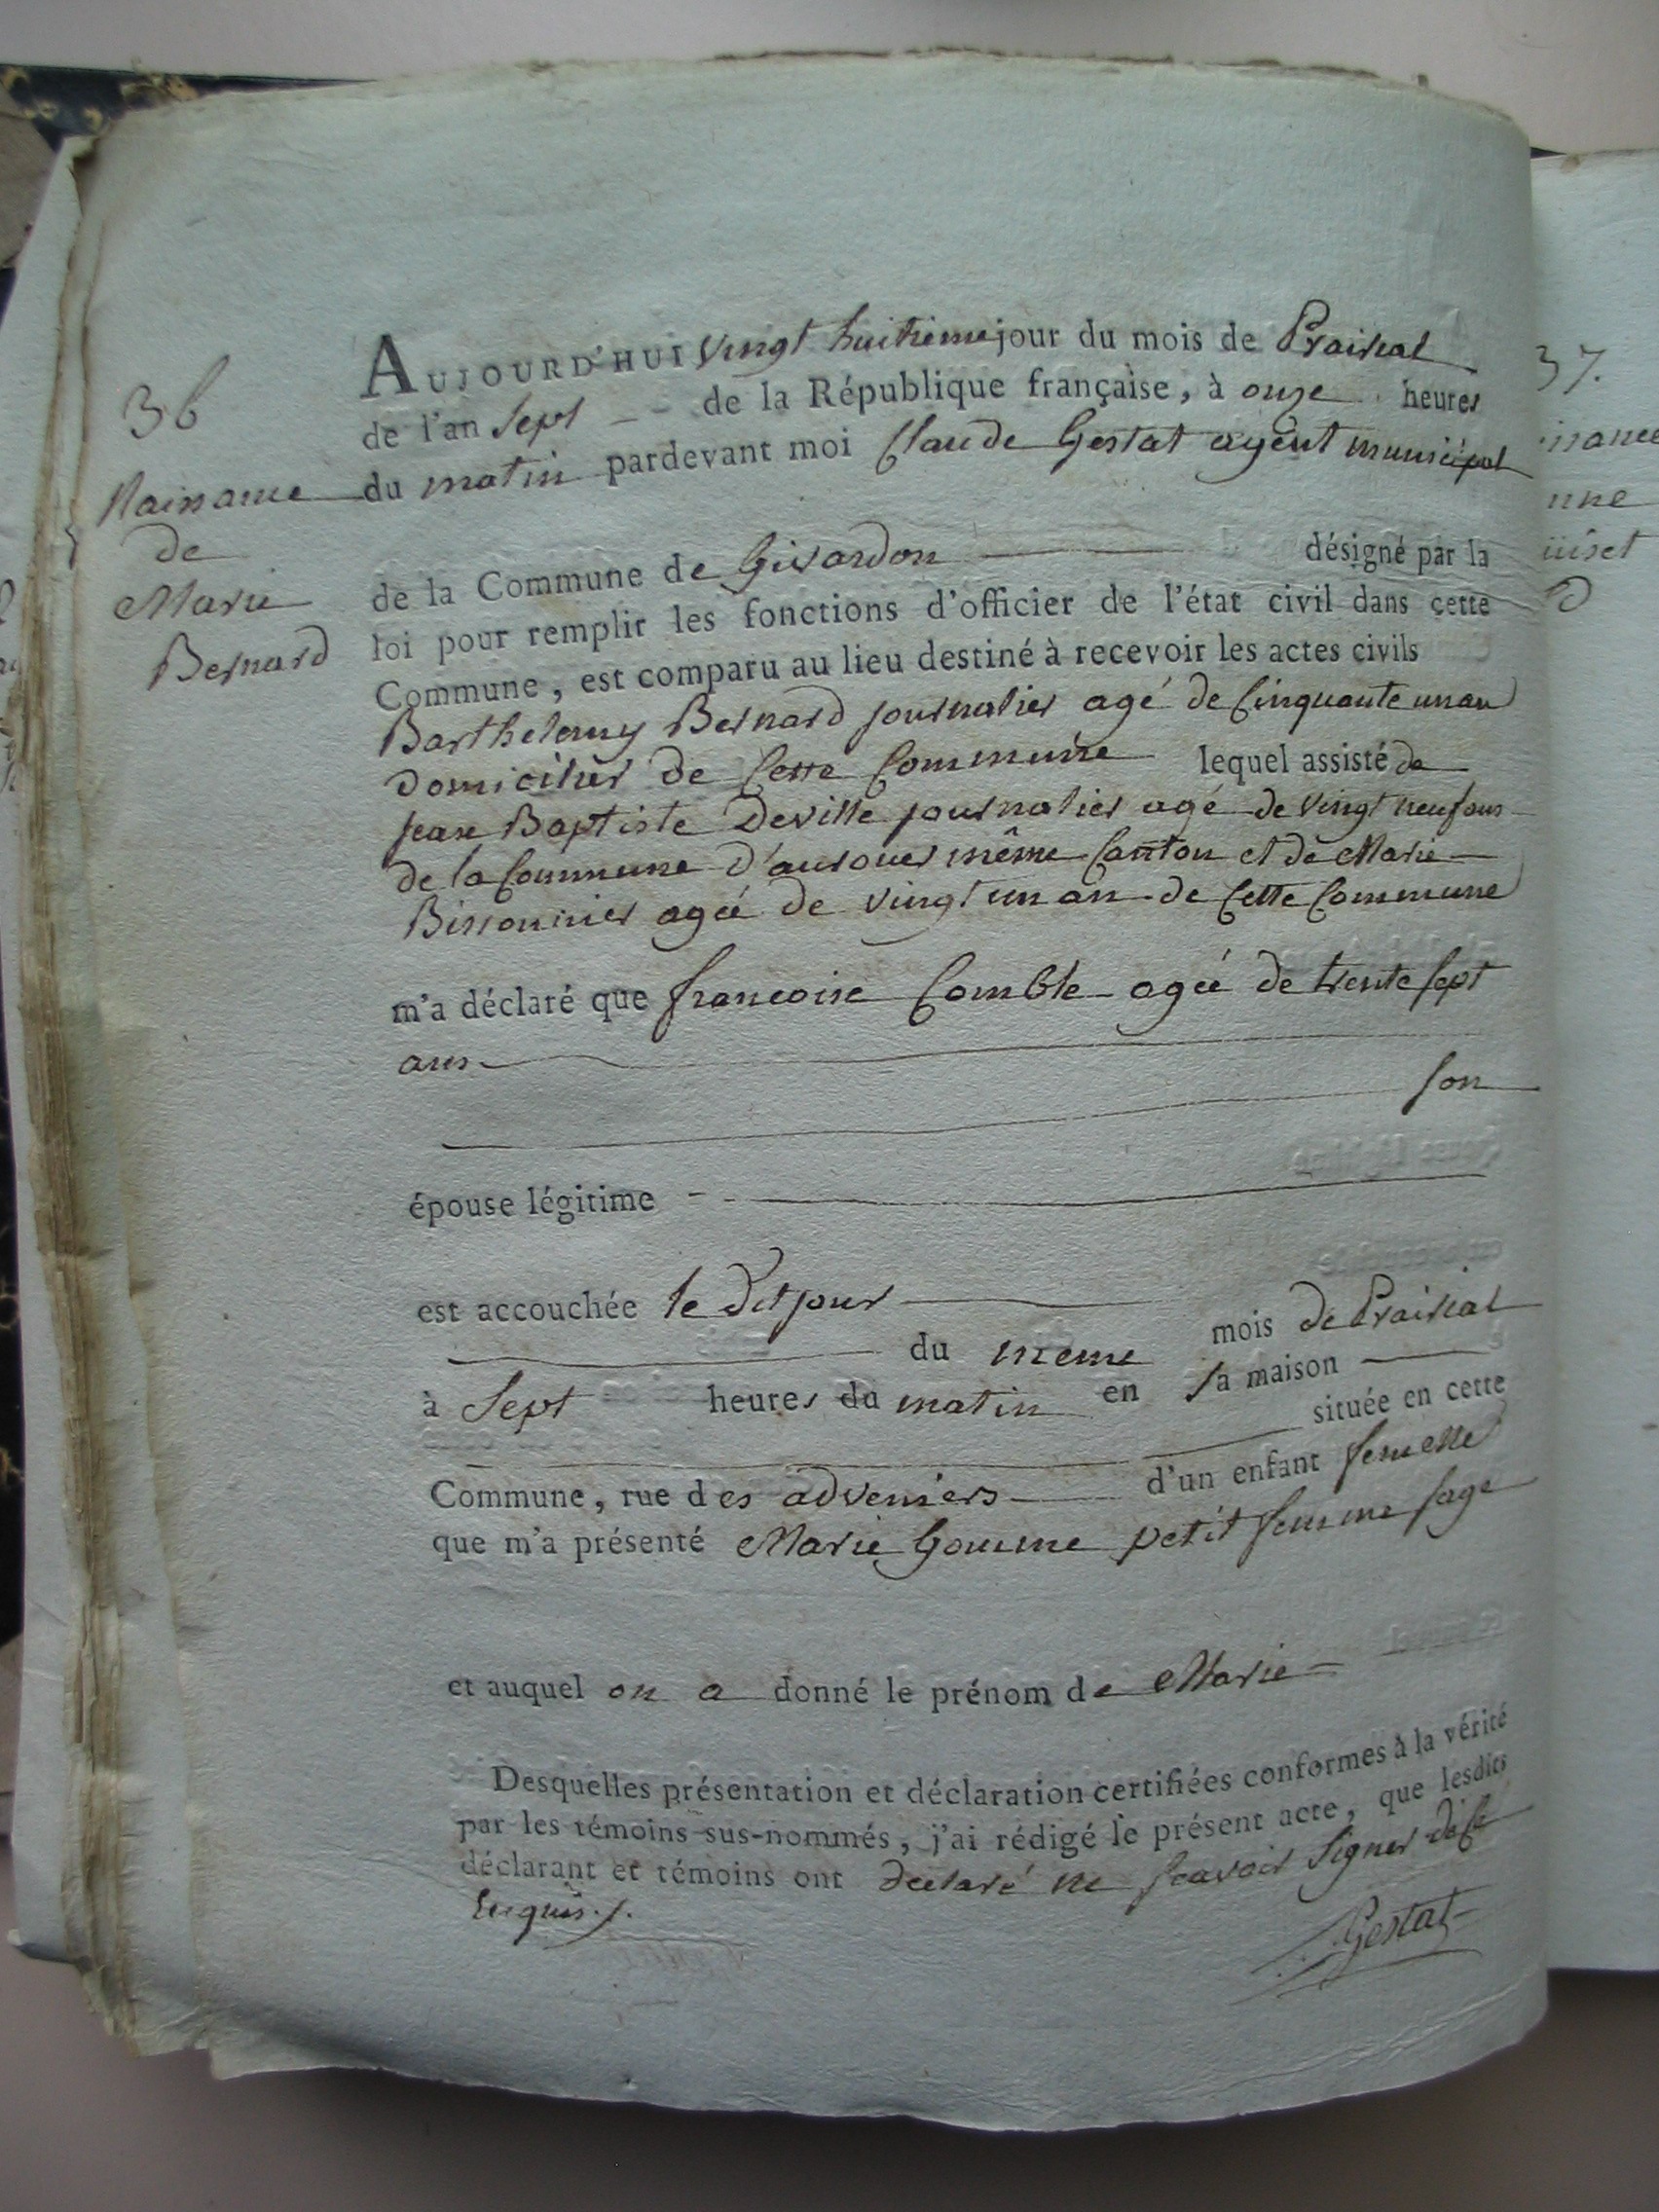 36
Naissance
de
Marie
Bernard
AUJOURD'HUI vingt huitieme jour du mois de Prairial
de l'an sept de la République française, à onze heures
du matin pardevant moi Claude Gestat agent municipal
de la Commune de Givardon désigné par la
loi pour remplir les fonctions d'officier de l'état civil dans cette
Commune, est comparu au lieu destiné à recevoir les actes civils
Barthelemy Bernard journalier agé de Cinquante un an
domicilier de Cette Commune lequel assisté de
jean Baptiste Deville journalier agé de vingt neuf ans
de la Commune d'aurouer même Canton et de Marie
Bissonnier ageé de vingt un an de Cette Commune
m'a déclaré que francoise Comble ageé de trente sept
ans
son
épouse légitime
est accouchée le dit jour
du meme mois de Prairial
à Sept heures du matin en sa maison
située en cette
Commune, rue des adveniers d'un enfant femelle
que m'a présenté Marie Gomme petit femme sage
et auquel on a donné le prénom de Marie
Desquelles présentation et déclaration certifiées conformes à la vérité
par les témoins sus-nommés, j'ai rédigé le présent acte, que lesdits
déclarant et témoins ont declaré ne scavoir signer de ce
Enquis
Gestat
37.